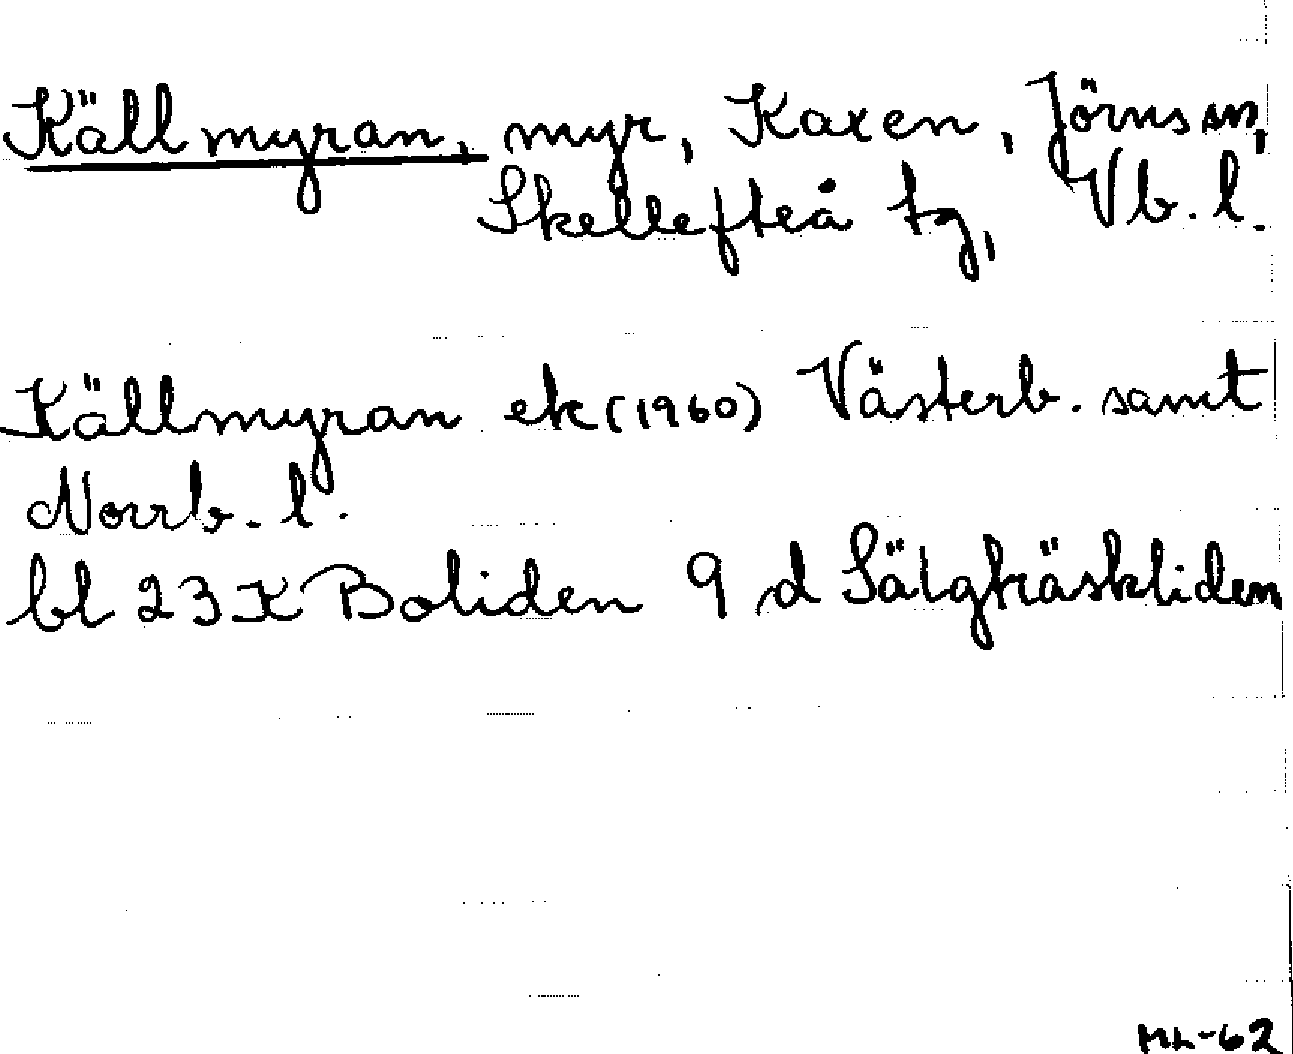 Källmyran, myr, Kaxen, Jörns sn,
Skellefteå tg, Vb. l.
Källmyran ek (1960) Västerb. samt
Norrb. l.
bl 23 K Boliden 9 d Sälgträskliden
ML-62